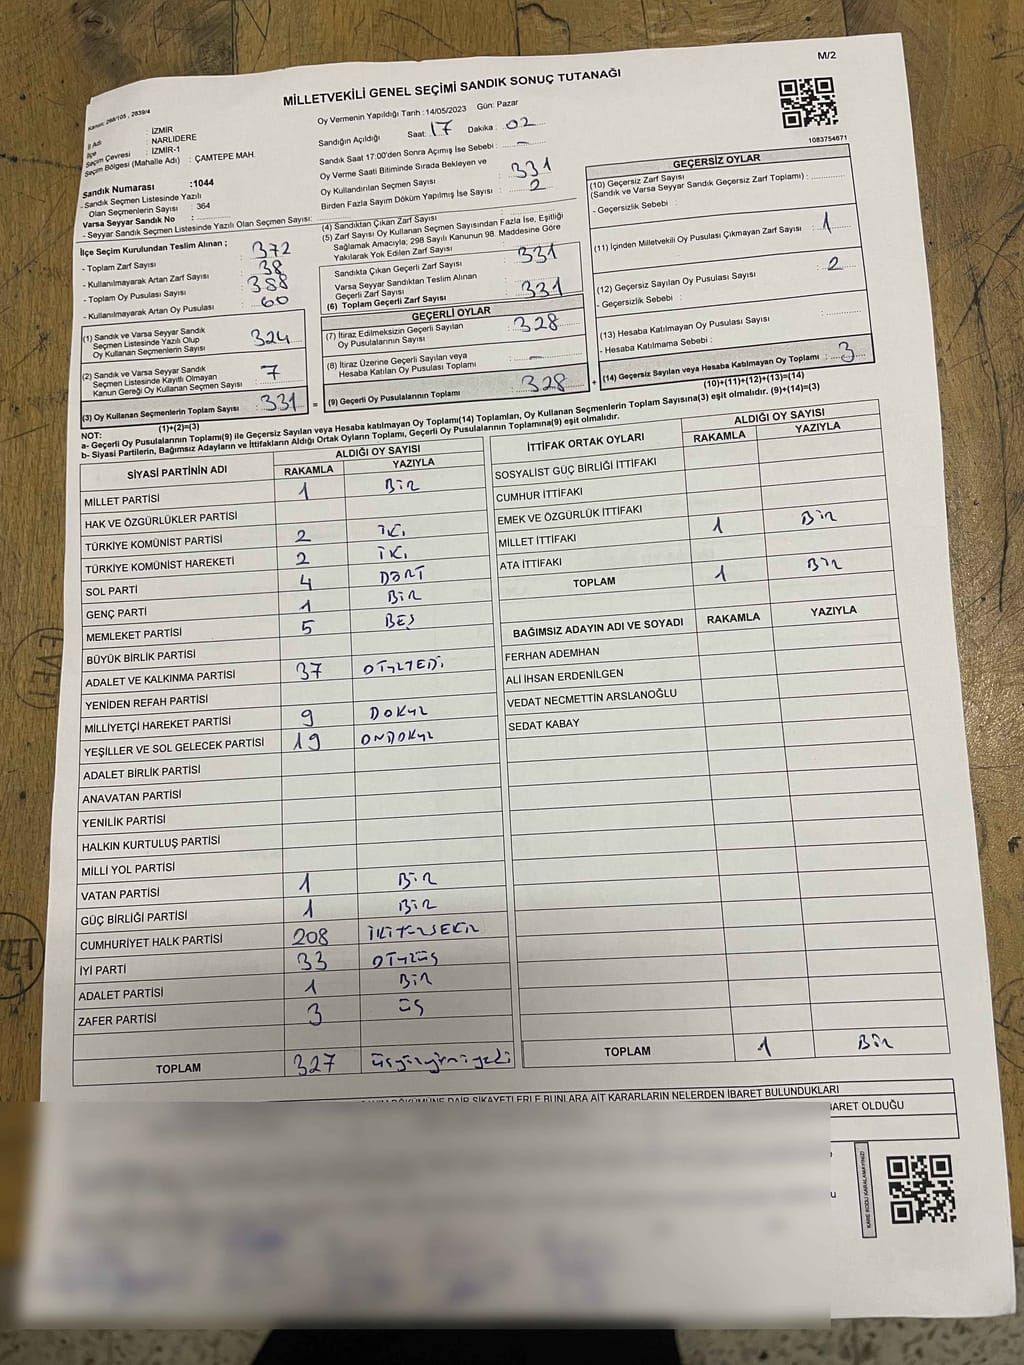 M/2
MİLLETVEKİLİ GENEL SEÇİMİ SANDIK SONUÇ TUTANAĞI
Kanun: 298/105 , 2839/4
1083754671
İl Adı : İZMİR
İlçe : NARLIDERE
Seçim Çevresi : İZMİR-1
Seçim Bölgesi (Mahalle Adı) : ÇAMTEPE MAH.
Sandık Numarası :1044
- Sandık Seçmen Listesinde Yazılı
Olan Seçmenlerin Sayısı : 364
Varsa Seyyar Sandık No :
- Seyyar Sandık Seçmen Listesinde Yazılı Olan Seçmen Sayısı:
Oy Vermenin Yapıldığı Tarih : 14/05/2023 Gün: Pazar
Sandığın Açıldığı Saat: 17 Dakika : 02
Sandık Saat 17:00'den Sonra Açımış İse Sebebi : -
Oy Verme Saati Bitiminde Sırada Bekleyen ve
Oy Kullandırılan Seçmen Sayısı : 331
Birden Fazla Sayım Döküm Yapılmış İse Sayısı : 2
İlçe Seçim Kurulundan Teslim Alınan ;
- Toplam Zarf Sayısı : 372
- Kullanılmayarak Artan Zarf Sayısı : 38
- Toplam Oy Pusulası Sayısı : 388
- Kullanılmayarak Artan Oy Pusulası : 60
(1) Sandık ve Varsa Seyyar Sandık
Seçmen Listesinde Yazılı Olup
Oy Kullanan Seçmenlerin Sayısı : 324
(2) Sandık ve Varsa Seyyar Sandık
Seçmen Listesinde Kayıtlı Olmayan
Kanun Gereği Oy Kullanan Seçmen Sayısı : 7
(3) Oy Kullanan Seçmenlerin Toplam Sayısı : 331
(1)+(2)=(3)
=
(4) Sandıktan Çıkan Zarf Sayısı
(5) Zarf Sayısı Oy Kullanan Seçmen Sayısından Fazla İse, Eşitliği
Sağlamak Amacıyla; 298 Sayılı Kanunun 98. Maddesine Göre
Yakılarak Yok Edilen Zarf Sayısı :
Sandıkta Çıkan Geçerli Zarf Sayısı : 331
Varsa Seyyar Sandıktan Teslim Alınan
Geçerli Zarf Sayısı :
(6) Toplam Geçerli Zarf Sayısı : 331
GEÇERLİ OYLAR
(7) İtiraz Edilmeksizin Geçerli Sayılan
Oy Pusulalarının Sayısı : 328
(8) İtiraz Üzerine Geçerli Sayılan veya
Hesaba Katılan Oy Pusulası Toplamı : -
(9) Geçerli Oy Pusulalarının Toplamı : 328
+
GEÇERSİZ OYLAR
(10) Geçersiz Zarf Sayısı
(Sandık ve Varsa Seyyar Sandık Geçersiz Zarf Toplamı) :
- Geçersizlik Sebebi :
(11) İçinden Milletvekili Oy Pusulası Çıkmayan Zarf Sayısı : 1
(12) Geçersiz Sayılan Oy Pusulası Sayısı : 2
- Geçersizlik Sebebi :
(13) Hesaba Katılmayan Oy Pusulası Sayısı :
- Hesaba Katılmama Sebebi :
(14) Geçersiz Sayılan veya Hesaba Katılmayan Oy Toplamı : 3
(10)+(11)+(12)+(13)=(14)
NOT:
a- Geçerli Oy Pusulalarının Toplamı(9) ile Geçersiz Sayılan veya Hesaba katılmayan Oy Toplamı(14) Toplamları, Oy Kullanan Seçmenlerin Toplam Sayısına(3) eşit olmalıdır. (9)+(14)=(3)
b- Siyasi Partilerin, Bağımsız Adayların ve İttifakların Aldığı Ortak Oyların Toplamı, Geçerli Oy Pusulalarının Toplamına(9) eşit olmalıdır.
SİYASİ PARTİNİN ADI ALDIĞI OY SAYISI
RAKAMLA YAZIYLA
MİLLET PARTİSİ 1 BİR
HAK VE ÖZGÜRLÜKLER PARTİSİ
TÜRKİYE KOMÜNİST PARTİSİ 2 İKİ
TÜRKİYE KOMÜNİST HAREKETİ 2 İKİ
SOL PARTİ 4 DÖRT
GENÇ PARTİ 1 BİR
MEMLEKET PARTİSİ 5 BEŞ
BÜYÜK BİRLİK PARTİSİ
ADALET VE KALKINMA PARTİSİ 37 OTUZYEDİ
YENİDEN REFAH PARTİSİ
MİLLİYETÇİ HAREKET PARTİSİ 9 DOKUZ
YEŞİLLER VE SOL GELECEK PARTİSİ 19 ONDOKUZ
ADALET BİRLİK PARTİSİ
ANAVATAN PARTİSİ
YENİLİK PARTİSİ
HALKIN KURTULUŞ PARTİSİ
MİLLİ YOL PARTİSİ
VATAN PARTİSİ 1 BİR
GÜÇ BİRLİĞİ PARTİSİ 1 BİR
CUMHURİYET HALK PARTİSİ 208 İKİYÜZSEKİZ
İYİ PARTİ 33 OTUZÜÇ
ADALET PARTİSİ 1 BİR
ZAFER PARTİSİ 3 ÜÇ
TOPLAM 327 üçyüzyirmiyedi
İTTİFAK ORTAK OYLARI ALDIĞI OY SAYISI
RAKAMLA YAZIYLA
SOSYALİST GÜÇ BİRLİĞİ İTTİFAKI
CUMHUR İTTİFAKI
EMEK VE ÖZGÜRLÜK İTTİFAKI
MİLLET İTTİFAKI 1 BİR
ATA İTTİFAKI
TOPLAM 1 BİR
BAĞIMSIZ ADAYIN ADI VE SOYADI RAKAMLA YAZIYLA
FERHAN ADEMHAN
ALİ İHSAN ERDENİLGEN
VEDAT NECMETTİN ARSLANOĞLU
SEDAT KABAY
TOPLAM 1 BİR
DÖKÜMÜNE DAİR ŞİKAYETLERLE BUNLARA AİT KARARLARIN NELERDEN İBARET BULUNDUKLARI
İBARET OLDUĞU
KARE KODU KARALAMAYINIZ!
EVET